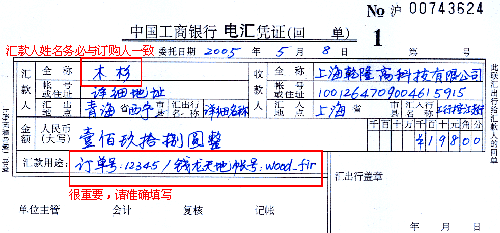 No 沪 00743624
中国工商银行 电汇凭证(回 单) 1
汇款人姓名务必与订购人一致 委托日期 2005 年 5 月 8 日
汇款人 全称 木杉 收款人 全称 上海乾隆高科技有限公司
帐号或住址 详细地址 帐号或住址 1001264709004615915
汇出地点 青海 省 西宁 市县 汇出行名称 详细名称 汇入地点 上海 省 市县 汇入行名称
金额 人民币(大写) 壹佰玖拾捌圆整 千百十万千百十元角分
¥19800
汇款用途: 订单号:12345/钱龙天地帐号:wood_fir 汇出行盖章
很重要,请准确填写
单位主管 会计 复核 记帐 年 月 日
此联汇出行给汇款人的回单